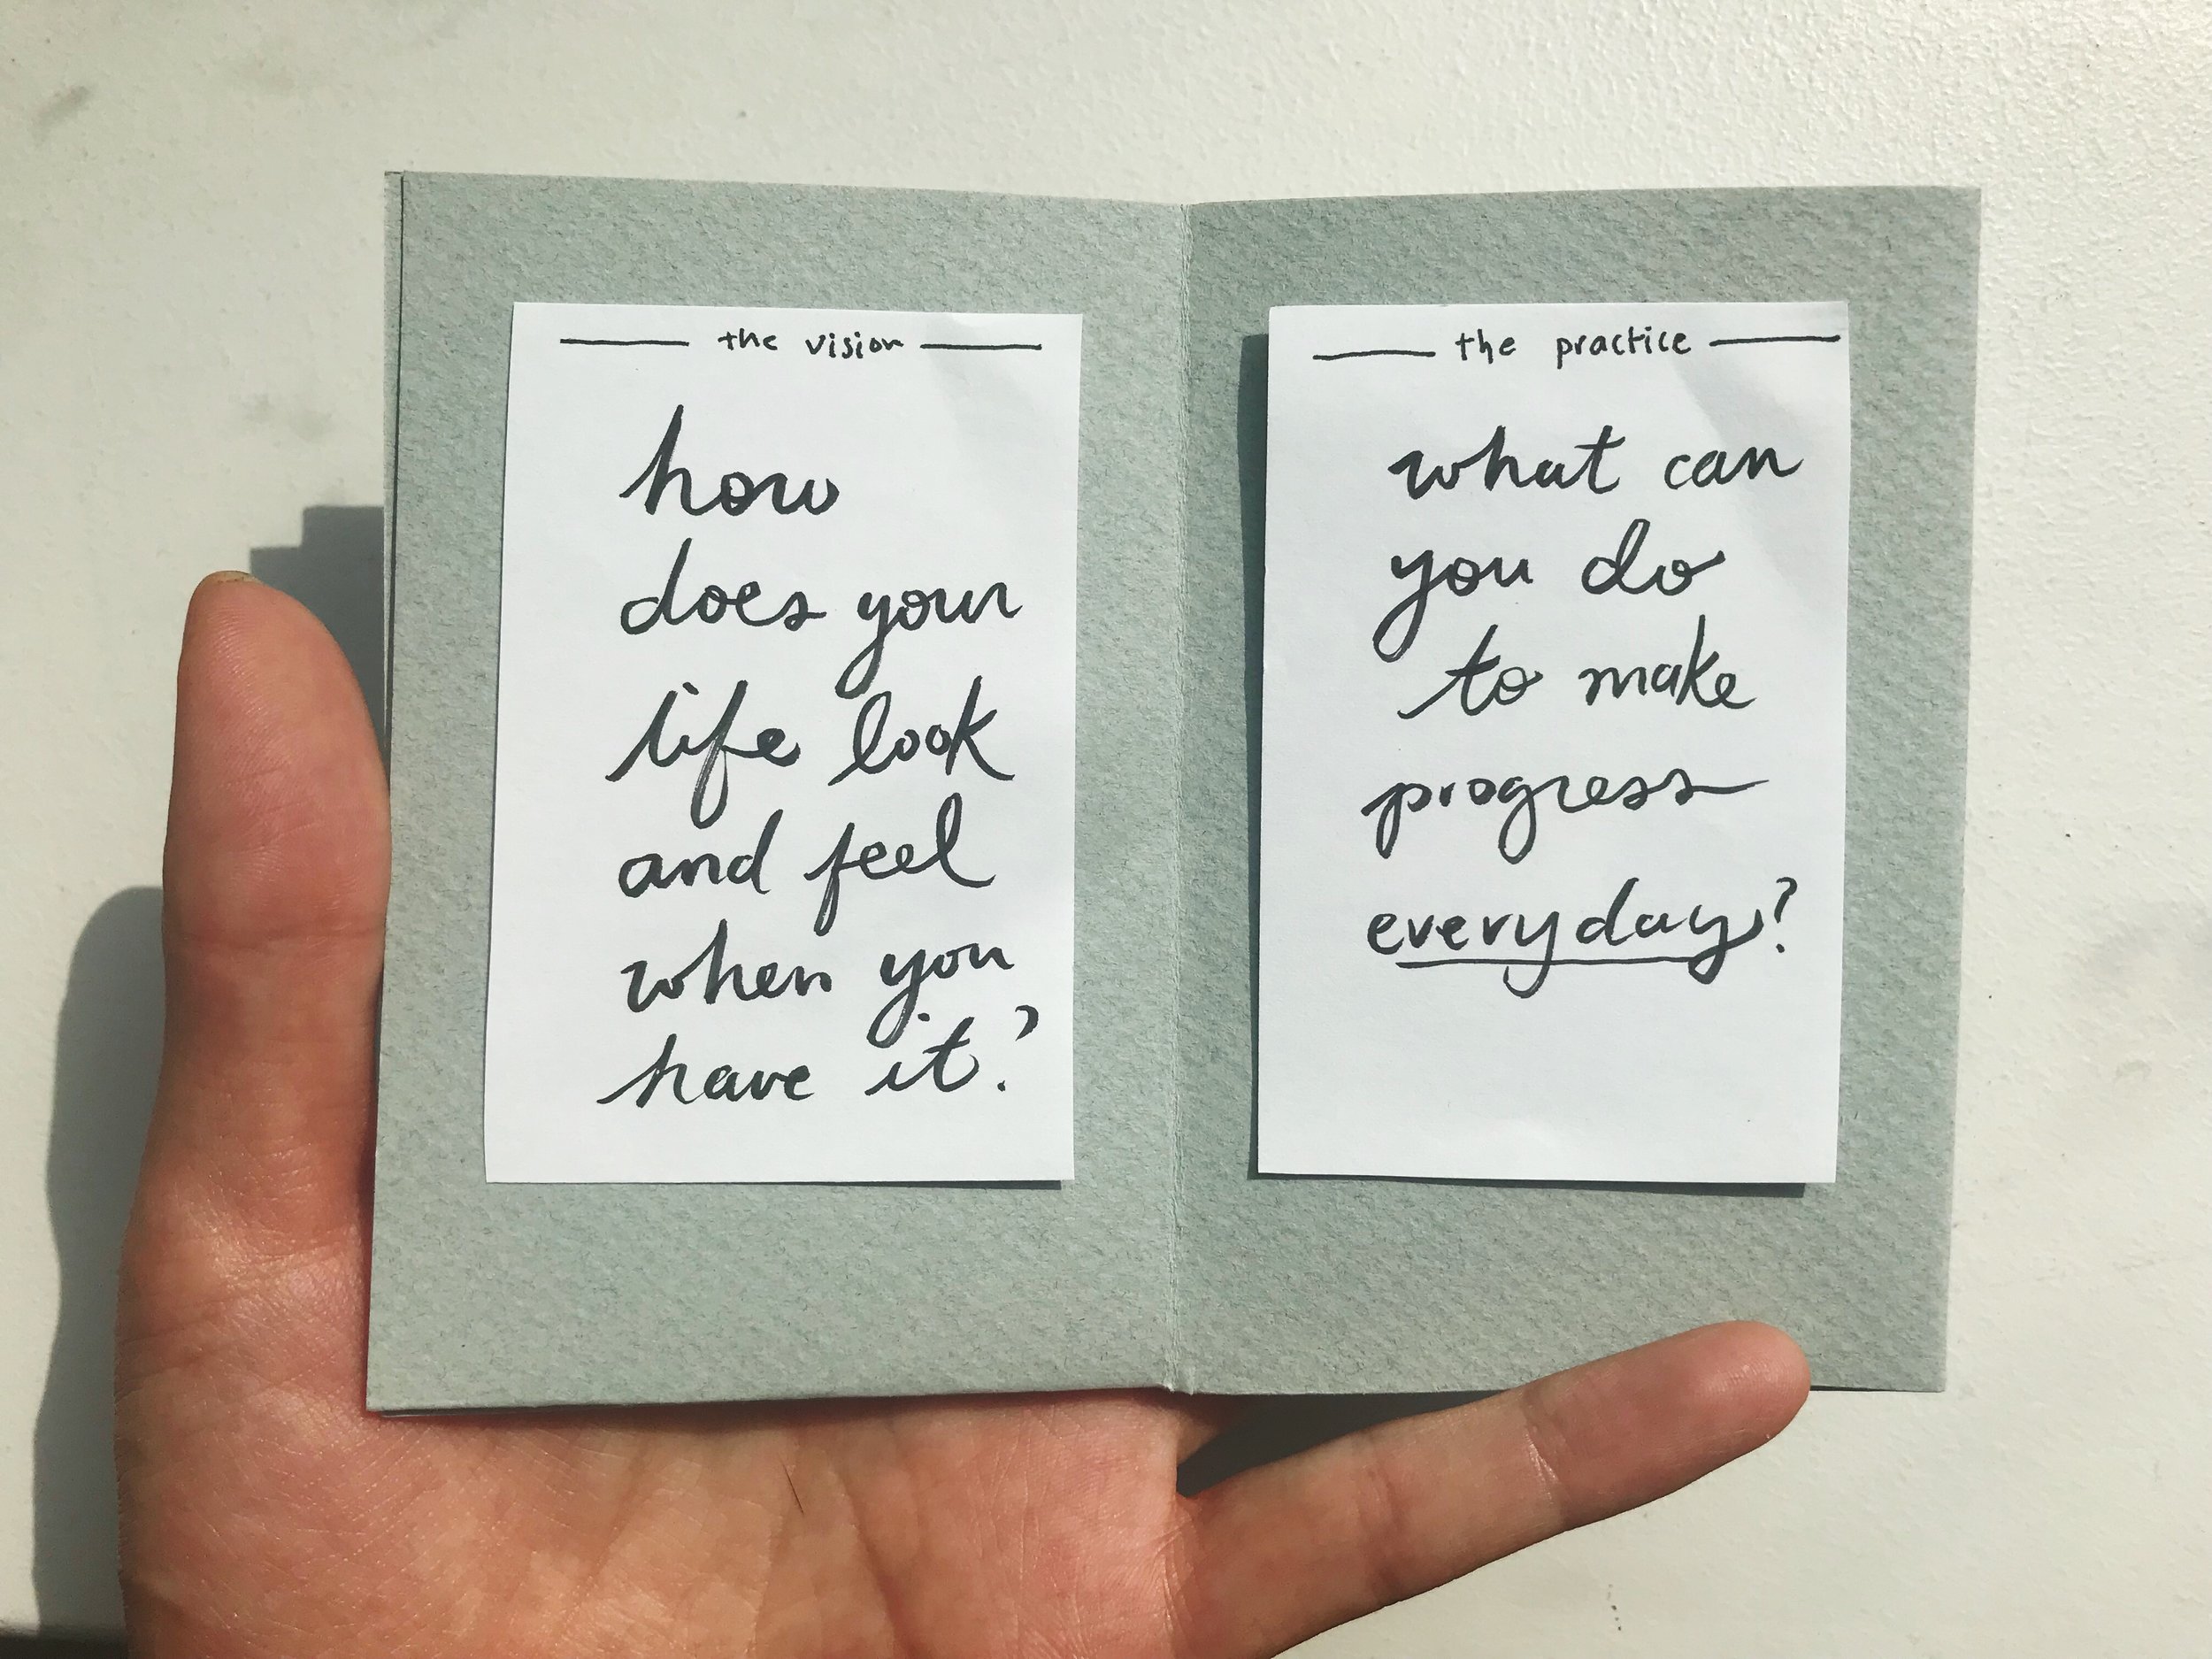 the vision
how
does your
life look
and feel
when you
have it?
the practice
what can
you do
to make
progress
everyday?